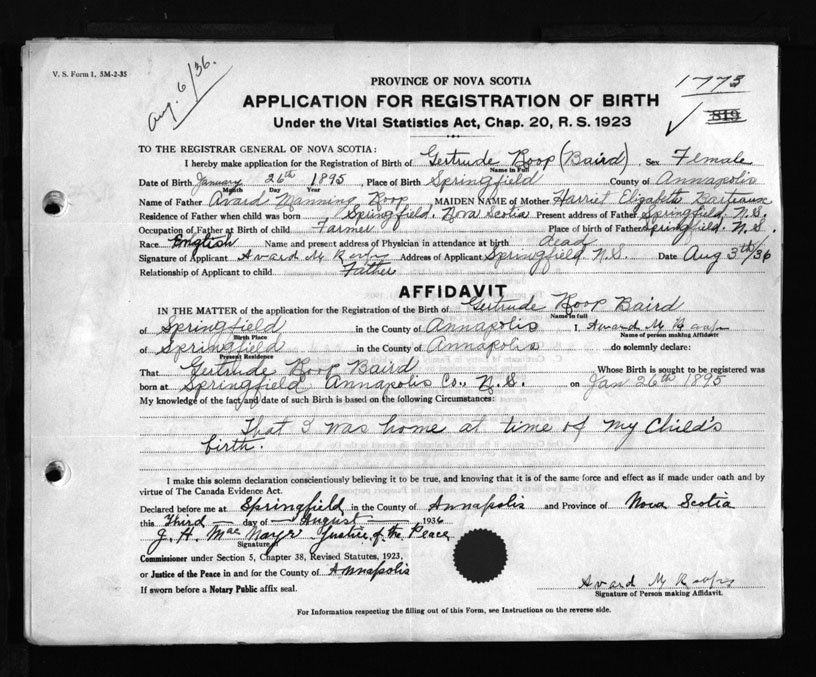 V. S. Form 1, 5M-2-35
Aug. 6/36.
PROVINCE OF NOVA SCOTIA
1773
APPLICATION FOR REGISTRATION OF BIRTH
819
Under the Vital Statistics Act, Chap. 20, R. S. 1923
TO THE REGISTRAR GENERAL OF NOVA SCOTIA:
I hereby make application for the Registration of Birth of Gertrude Roop (Baird) Sex Female
Name in Full
Date of Birth January 26th 1895, Place of Birth Springfield County of Annapolis
Month Day Year
Name of Father Avard Manning Roop MAIDEN NAME of Mother Harriet Elizabeth
Residence of Father when child was born Springfield, Nova Scotia Present address of Father Springfield, N.S.
Occupation of Father at Birth of child Farmer Place of birth of Father Springfield, N.S.
Race English Name and present address of Physician in attendance at birth dead
Signature of Applicant Avard M Roop Address of Applicant Springfield N.S. Date Aug 3rd/36
Relationship of Applicant to child Father
AFFIDAVIT
IN THE MATTER of the application for the Registration of the Birth of Gertrude Roop Baird
Name in full
of Springfield in the County of Annapolis I, Avard M Roop
Birth Place Name of person making Affidavit
of Springfield in the County of Annapolis do solemnly declare:
Present Residence
That Gertrude Roop Baird Whose Birth is sought to be registered was
born at Springfield Annapolis Co., N.S. on Jan 26th 1895
My knowledge of the fact and date of such Birth is based on the following Circumstances:
That I was home at time of my Child's
birth.
I make this solemn declaration conscientiously believing it to be true, and knowing that it is of the same force and effect as if made under oath and by
virtue of The Canada Evidence Act.
Declared before me at Springfield in the County of Annapolis and Province of Nova Scotia
this Third — day of — August — 1936
J. H. Justice of the Peace
Signature of
Commissioner under Section 5, Chapter 38, Revised Statutes, 1923,
or Justice of the Peace in and for the County of Annapolis
If sworn before a Notary Public affix seal.
Avard M Roop
Signature of Person making Affidavit.
For Information respecting the filling out of this Form, see Instructions on the reverse side.